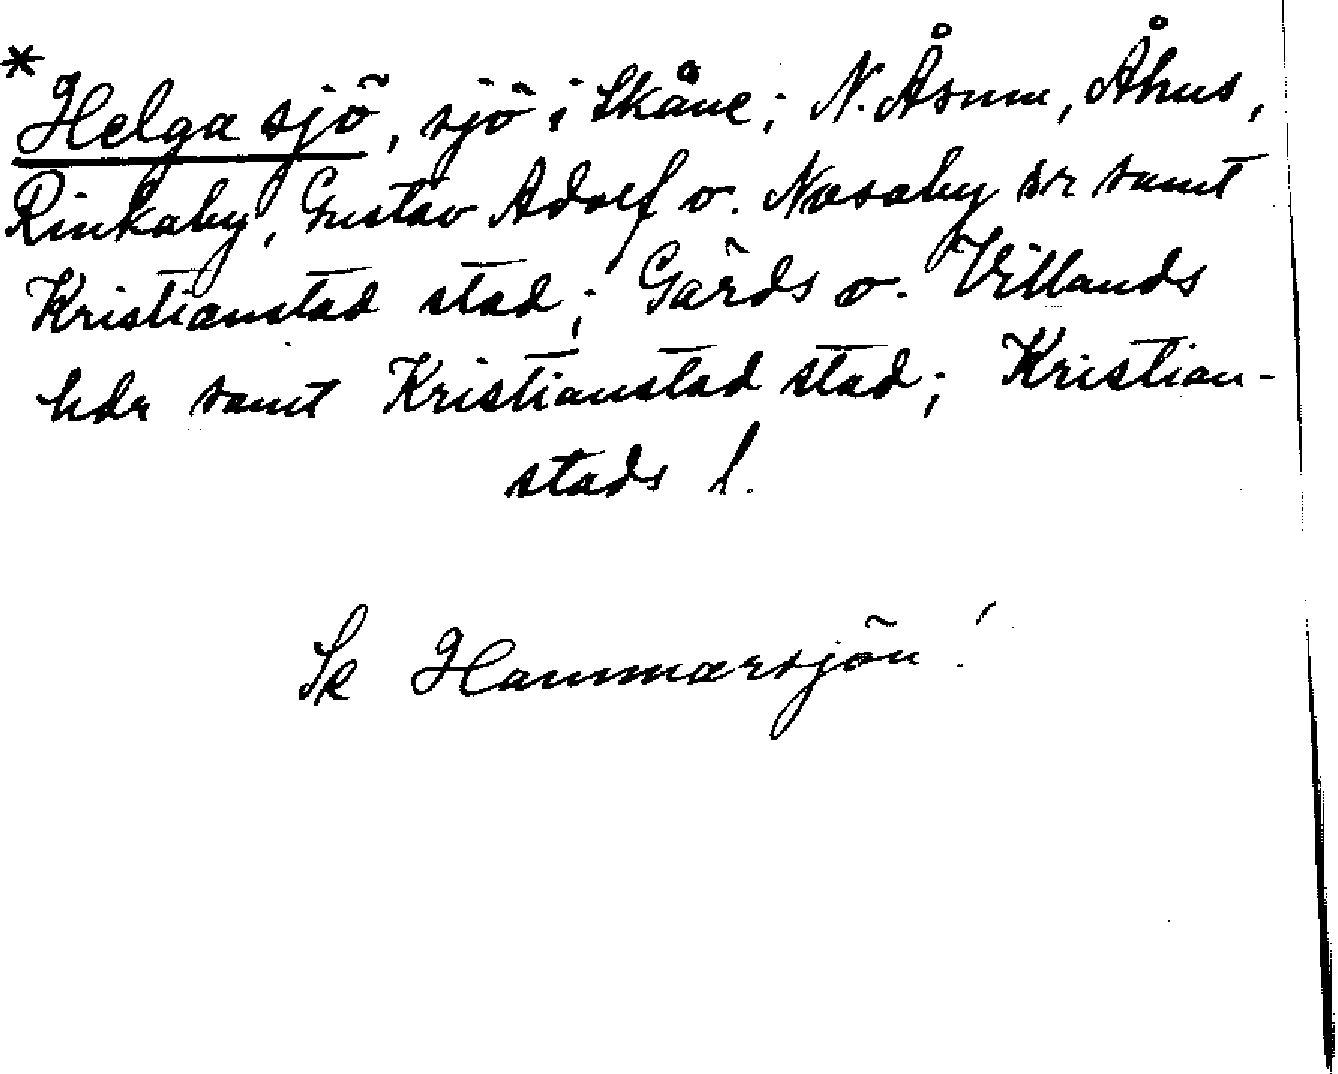 *Helga sjö, sjö i Skåne; N. Åsum, Åhus,
Rinkaby, Gustav Adolf o. Nosaby snr samt
Kristianstad stad; Gärds o. Villands
hdr samt Kristianstad stad; Kristian-
stads l.
Se Hammarsjön!